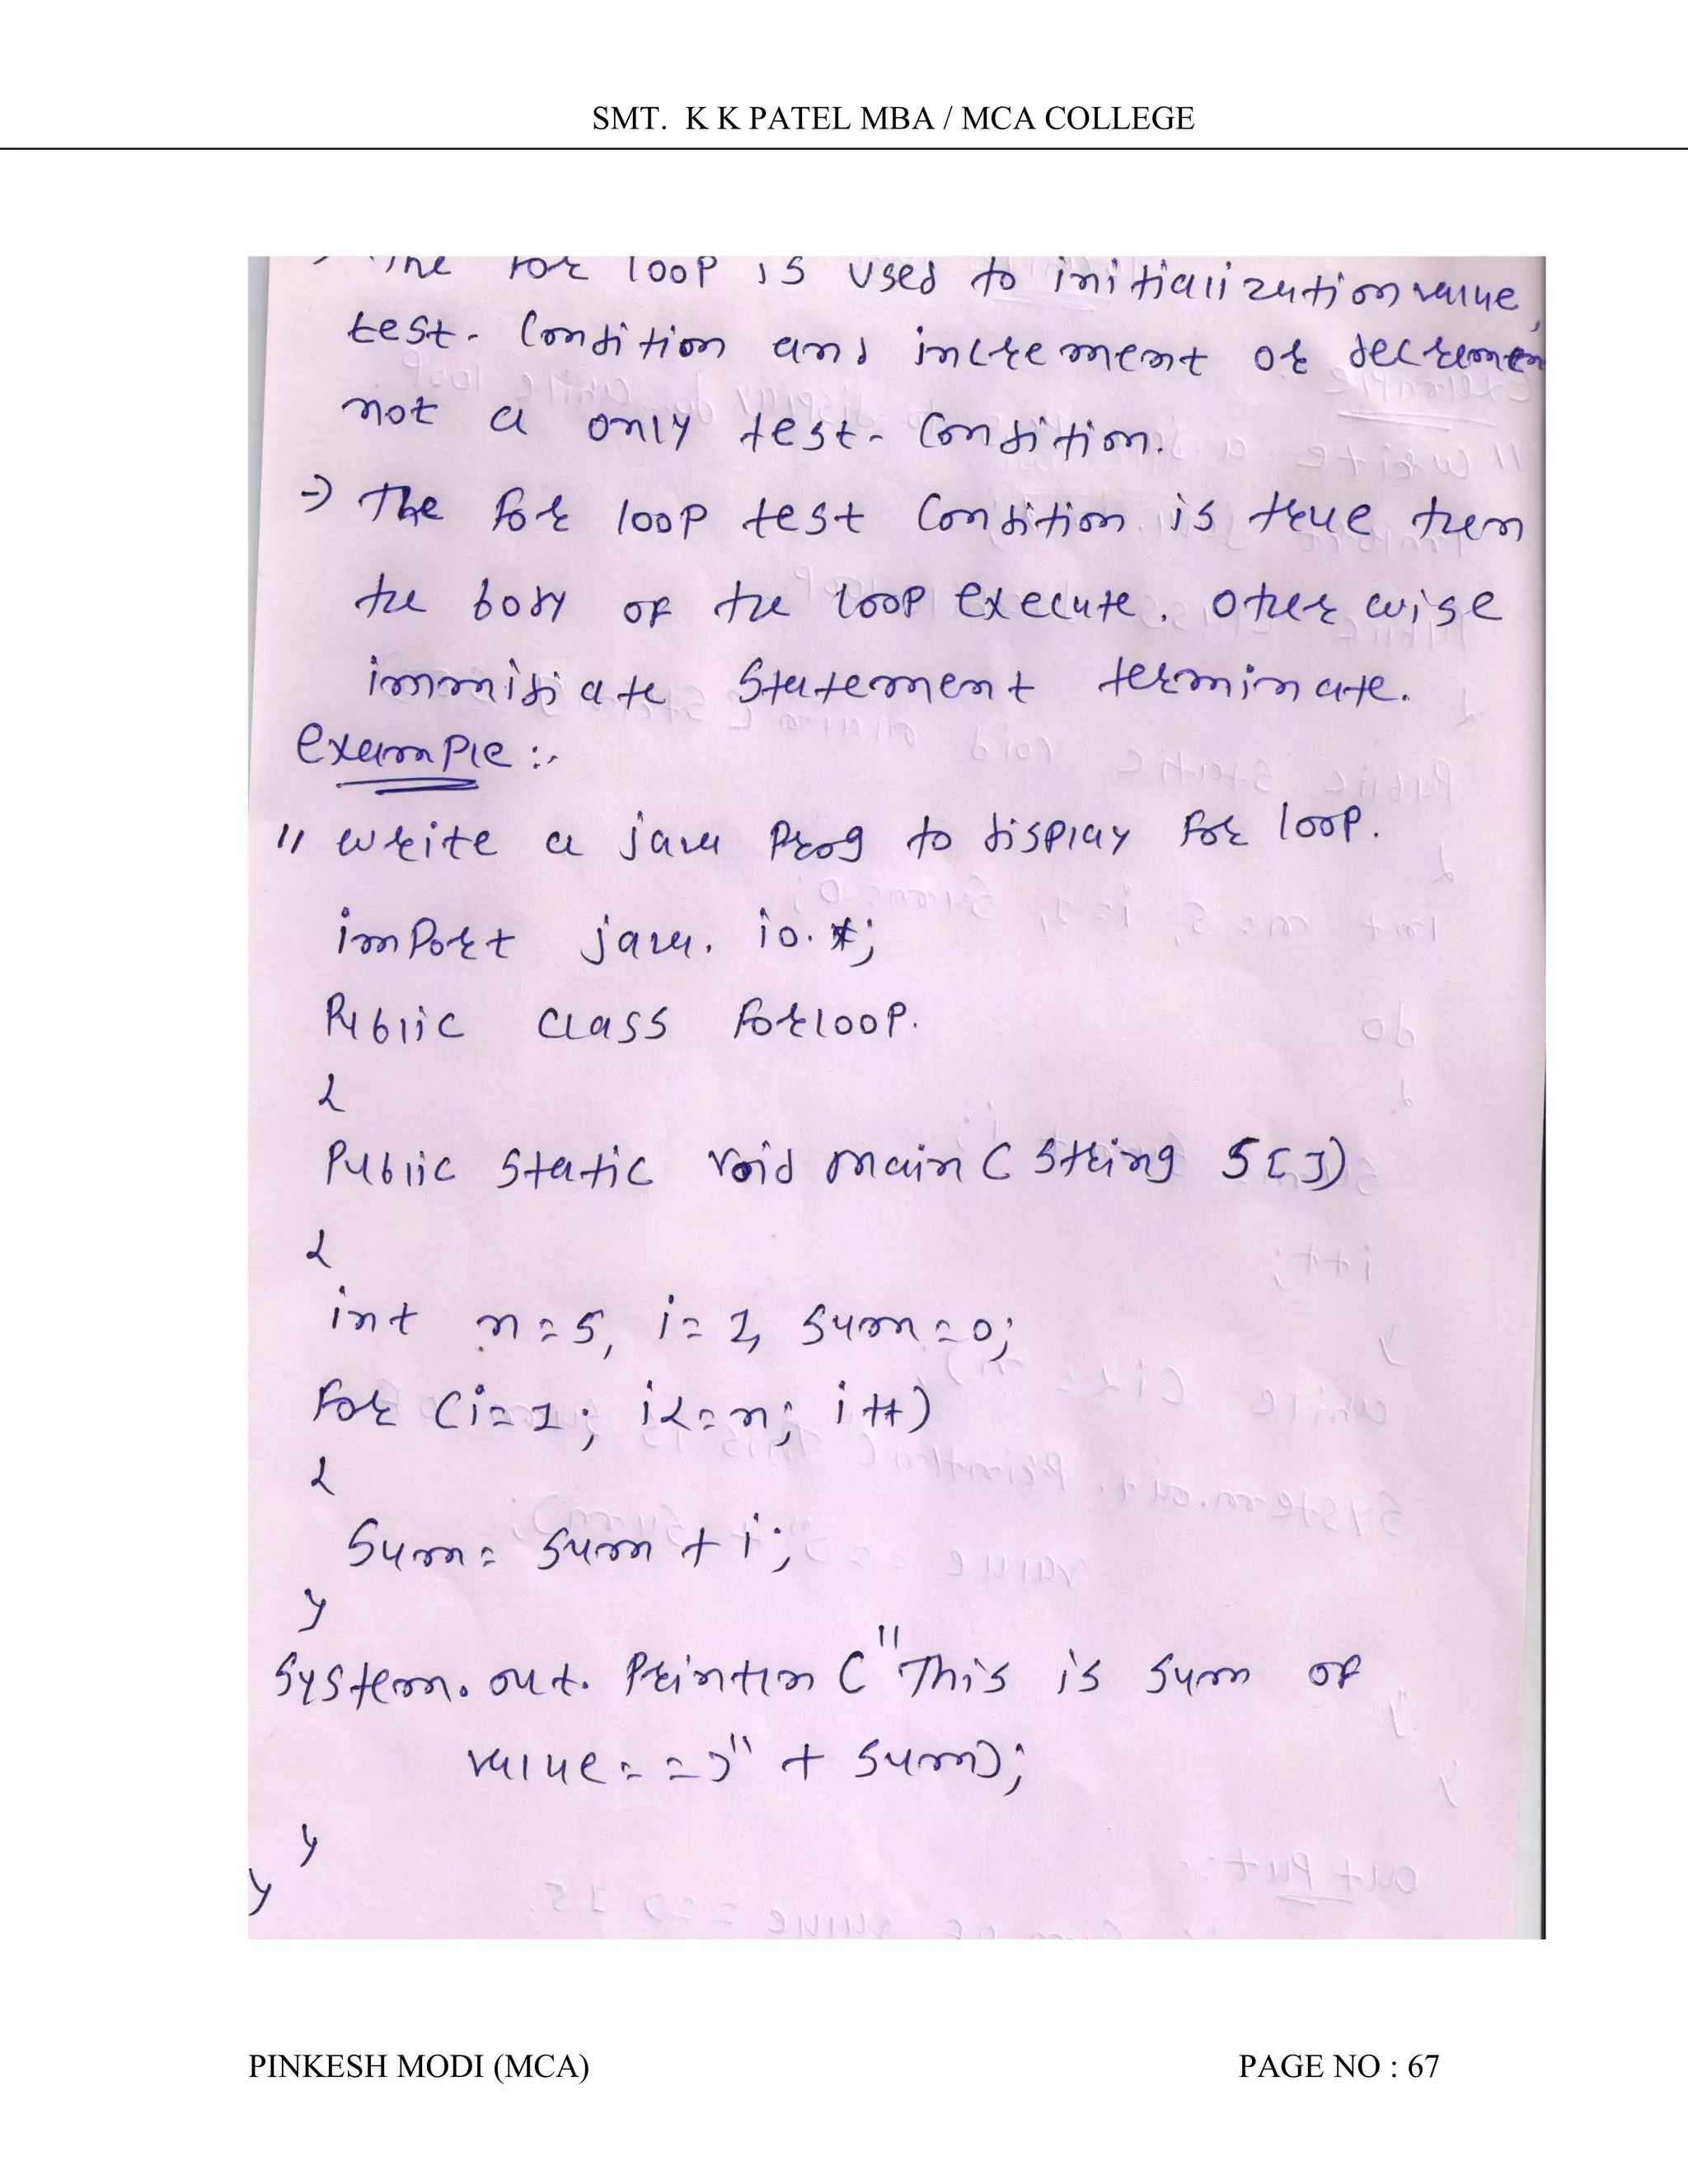 SMT. K K PATEL MBA / MCA COLLEGE
The for loop is used to initialization value,
test- condition and increment or decremen
not a only test- condition.
=> The for loop test condition is true then
the body of the loop execute. otherwise
immidiate statement terminate.
example :-
// write a java prog to display for loop.
import java. io.*;
Public class Forloop.
{
Public static void main ( string s[])
{
int n=5, i=1, sum=0;
For (i=1; i<=n; i++)
{
Sum= sum + i;
}
System. out. Println ("This is sum of
value= =>" + sum);
}
}
PINKESH MODI (MCA) PAGE NO : 67